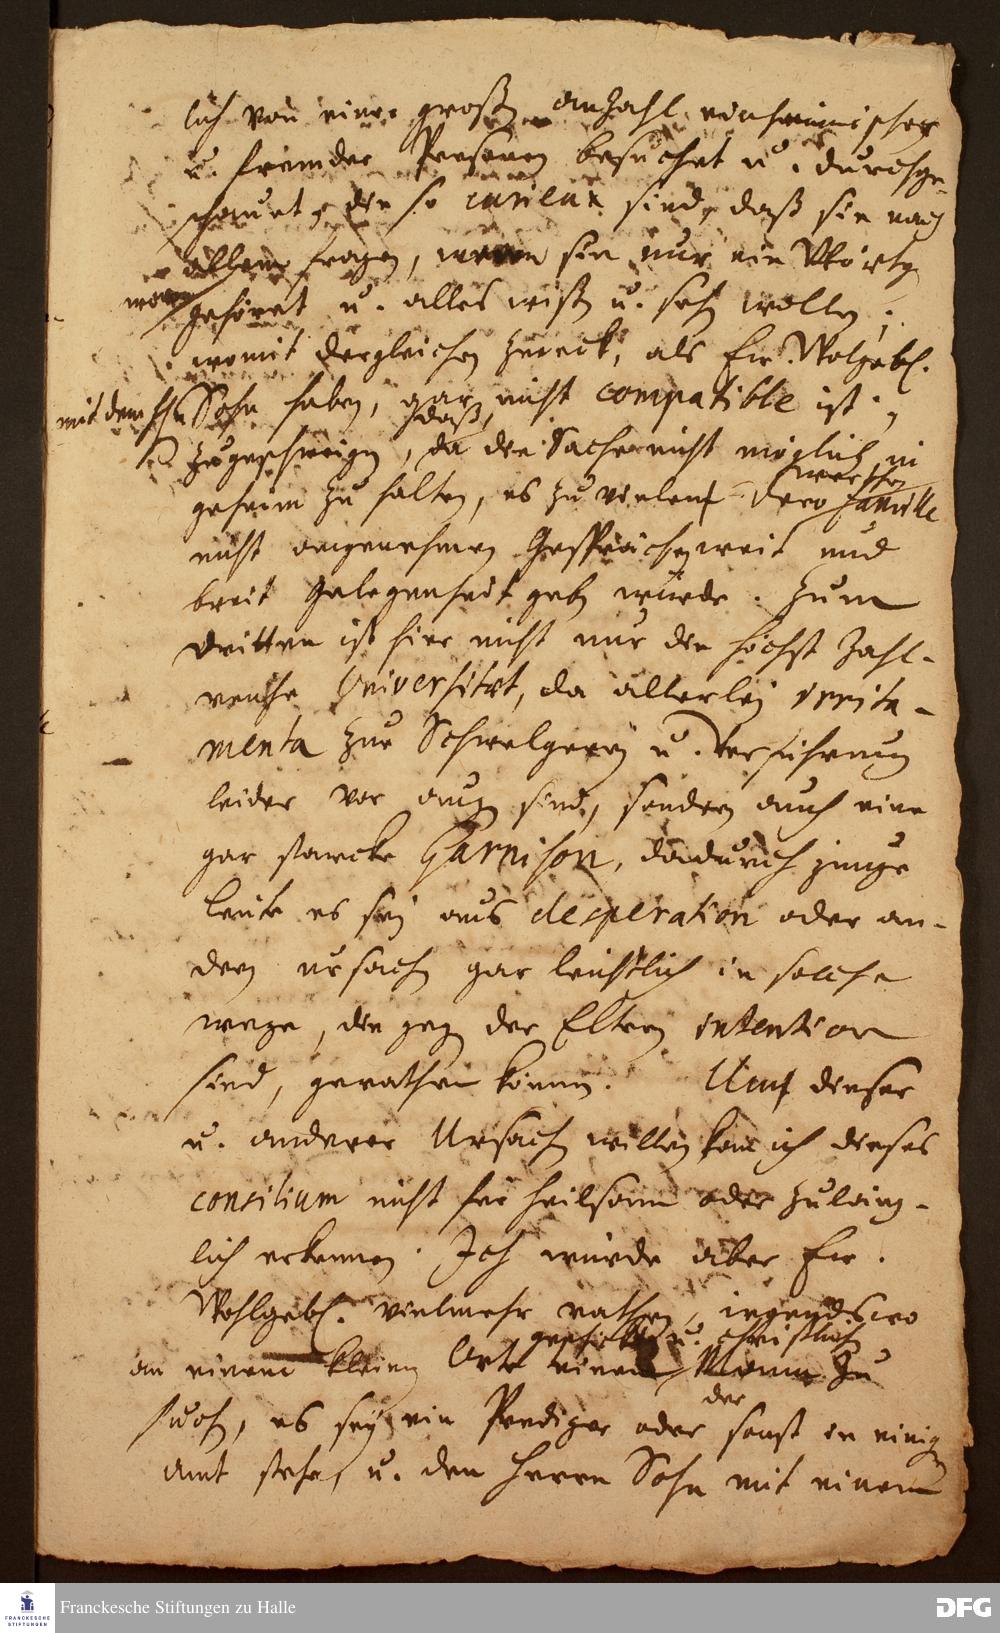 lich von einer großen anzahl einheimischer
u. fremder Personen besuchet u. durchge-
schauet, die so curieux sind, daß sie nach
allem fragen, wenn sie nur ein Wörtgen
gehöret u. alles wißen u. sehen wollen;
womit dergleichen Zweck, als Ew. Wolgeb.
mit dem Hn Sohn haben, gar nicht compatible ist;
zugeschweigen, daß, da die Sache nicht möglich in
geheim zu halten, es zu vielen Dero werthen Famille
nicht angenehmen Gesprächen weit und
breit Gelegenheit geben würde. Zum
dritten ist hier nicht nur die höchst Zahl-
reiche Universität, da allerley irrita-
menta zur Schwelgerey u. Verführung
leider vor augen sind, sondern auch eine
gar starcke Garnison, dadurch junge
Leute es sey aus desperation oder an-
dern ursachen gar leichtlich in solche
wege, die gegen der Eltern intention
sind, gerathen können. Um dieser
u. anderer Ursachen willen kan ich dieses
consilium nicht für heilsam oder zuläng-
lich erkennen. Ich würde aber Ew.
Wohlgeb. vielmehr rathen, irgendswo
an einem kleinen Orte einen u. christlichen Mann zu
suchen, es sey ein Prediger oder der sonst in einigen
Amt stehe, u. den Herrn Sohn mit einem
Franckesche Stiftungen zu Halle
DFG
FRANCKESCHE
STIFTUNGEN